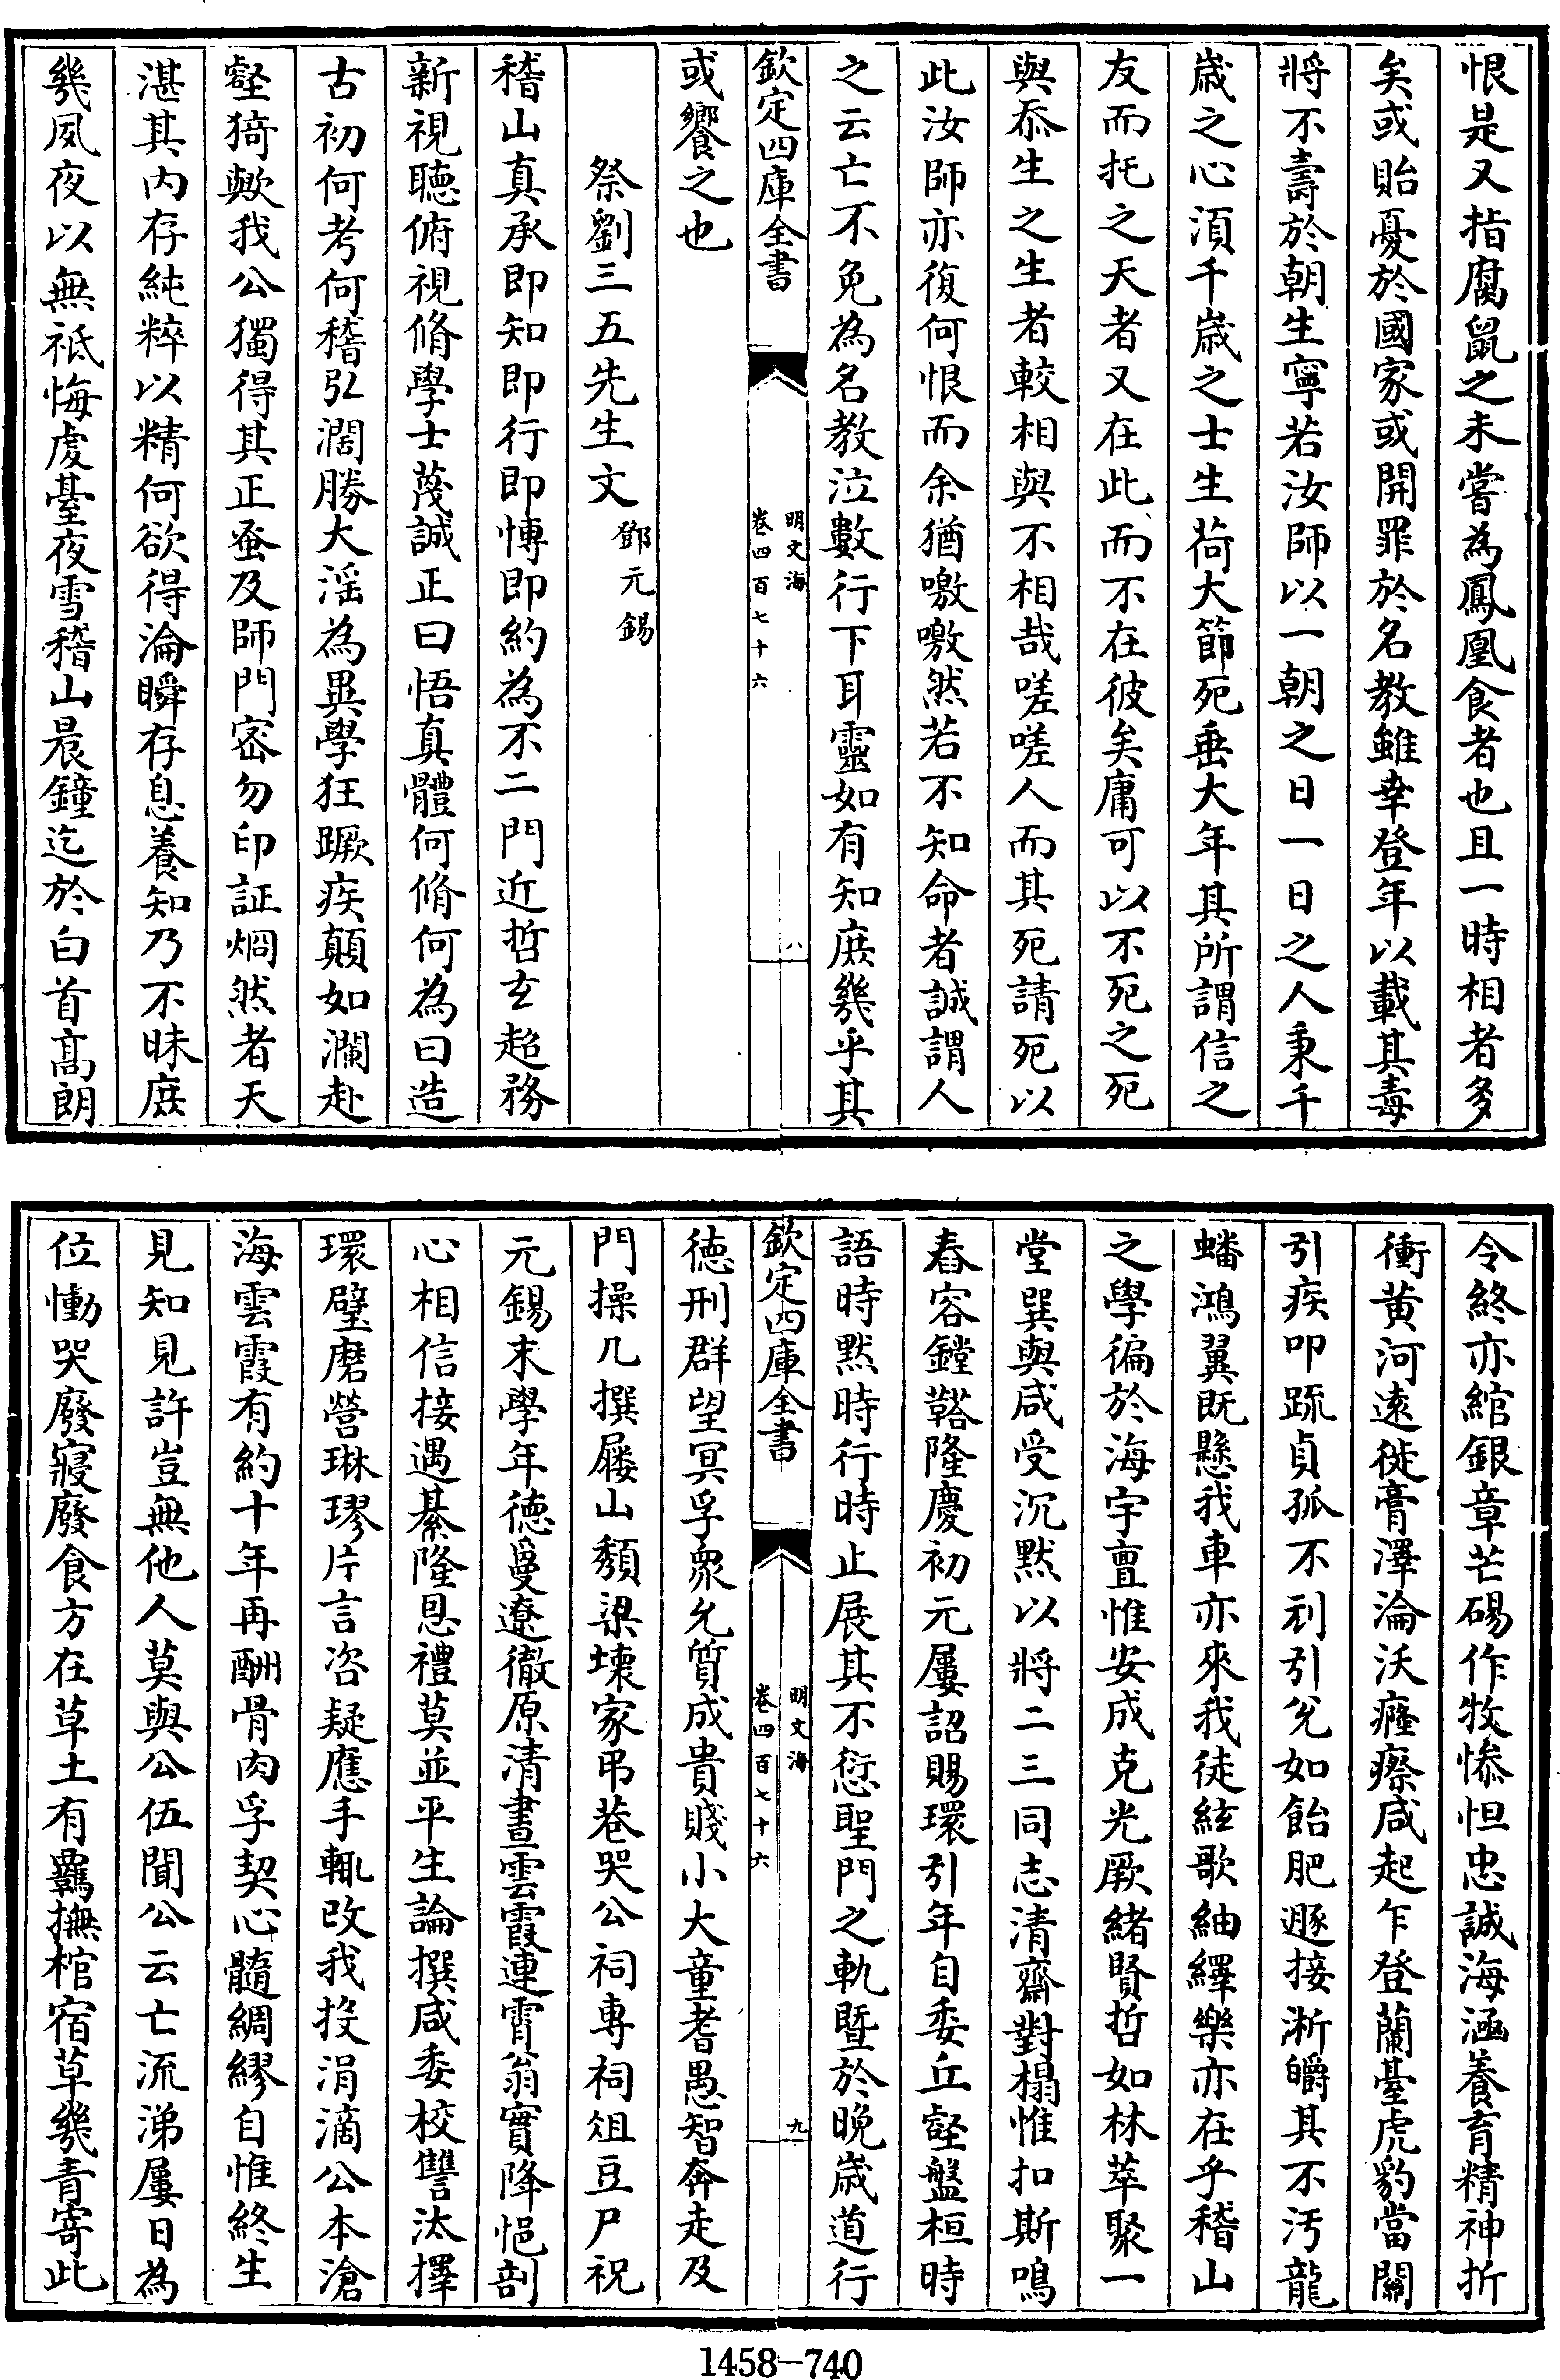 恨是又指腐鼠之未嘗為鳳凰食者也且一時相者多
矣或貽憂於國家或開罪於名教雖幸登年以載其毒
將不壽於朝生寧若汝師以一朝之日一日之人秉千
歲之心湏千歲之士生荷大節死垂大年其所謂信之
友而托之天者又在此而不在彼矣庸可以不死之死
與忝生之生者較相與不相哉嗟嗟人而其死請死以
此汝師亦復何恨而余猶噭噭然若不知命者誠謂人
之云亡不免為名教泣數行下耳靈如有知庶幾乎其
欽定四庫全書
明文海
卷四百七十六
八
或饗之也
祭劉三五先生文
鄧元錫
稽山真承即知即行即慱即約為不二門近哲玄超務
新視聽俯視脩學士蔑誠正曰悟真體何脩何為曰造
古初何考何稽弘濶勝大滛為異學狂蹶疾顛如瀾赴
壑猗歟我公獨得其正蚤及師門宻勿印証烱然者天
湛其内存純粹以精何欲得淪瞬存息養知乃不昧庶
幾夙夜以無祗悔虔臺夜雪稽山晨鐘迄於白首髙朗
令終亦綰銀章芒碭作牧慘怛忠誠海涵養育精神折
衝黄河逺徙膏澤淪沃癃瘵咸起乍登蘭臺虎豹當關
引疾叩疏貞孤不利引兊如飴肥遯接淅皭其不汚龍
蟠鴻翼既懸我車亦來我徒絃歌紬繹樂亦在乎稽山
之學徧於海宇亶惟安成克光厥緒賢哲如林萃聚一
堂巽與咸受沉黙以將二三同志清齋對榻惟扣斯鳴
舂容鏜鞳隆慶初元屢詔賜環引年自委丘壑盤桓時
語時黙時行時止展其不愆聖門之軌暨於晚歲道行
欽定四庫全書
明文海
卷四百七十六
九
德刑群望冥孚衆允質成貴賤小大童耆愚智奔走及
門操几撰屨山頽梁壊家弔巷哭公祠專祠俎豆尸祝
元錫末學年德曼遼徹原清晝雲霞連霄翁實降悒剖
心相信接遇綦隆恩禮莫並平生論撰咸委校讐汰擇
環璧磨瑩琳璆片言咨疑應手輒改我投涓滴公本滄
海雲霞有約十年再酬骨肉孚契心髓綢繆自惟終生
見知見許豈無他人莫與公伍聞公云亡流涕屢日為
位慟哭廢寢廢食方在草土有羈撫棺宿草幾青寄此
1458—740